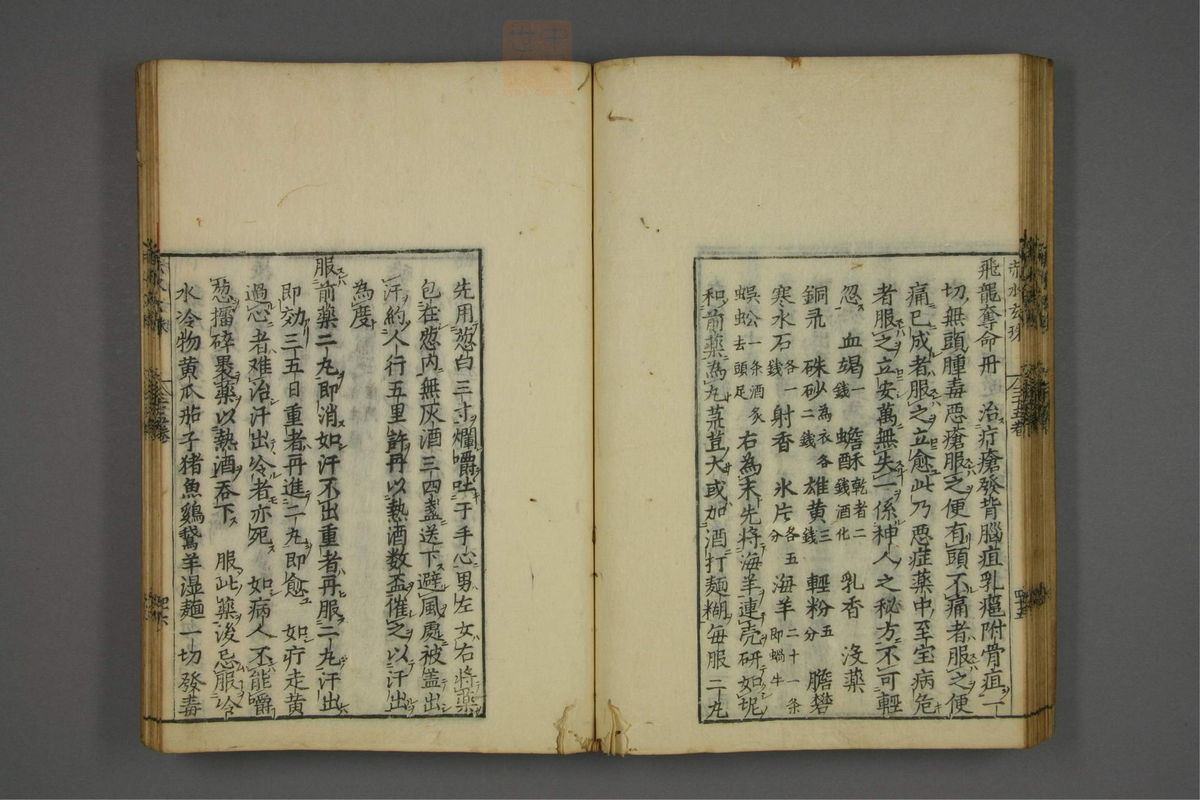 赤水玄珠
飛龍奪命丹 治疔瘡發背腦疽乳癰附骨疽一
切無頭腫毒惡瘡服之便有頭不痛者服之便
痛已成者服之立愈此乃惡症藥中至宝病危
者服之立安萬無失一係神人之秘方不可輕
忽 血竭一錢 蟾酥乾者二錢酒化 乳香 沒藥
銅录 硃砂為衣各二錢 雄黄三錢 輕粉五分 膽礬
寒水石各一錢 射香 氷片各五分 海羊二十一条即蝸牛
蜈蚣一条酒炙去頭足 右為末先將海羊連壳研如坭
和前藥為丸菉荳大或加酒打麵糊毎服二丸
先用葱白三寸爛嚼吐于手心男左女右將藥
包在葱內無灰酒三四盞送下避風處被盖出
汗約人行五里許再以熱酒数盃催之以汗出
為度
服前藥二丸即消如汗不出重者再服二丸汗出
即効三五日重者再進二丸即愈 如疔走黄
過心者难治汗出冷者亦死 如病人不能嚼
葱擂碎褁藥以熱酒吞下 服此藥後忌服冷
水冷物黄瓜茄子猪魚鷄鵞羊湿麵一切發毒